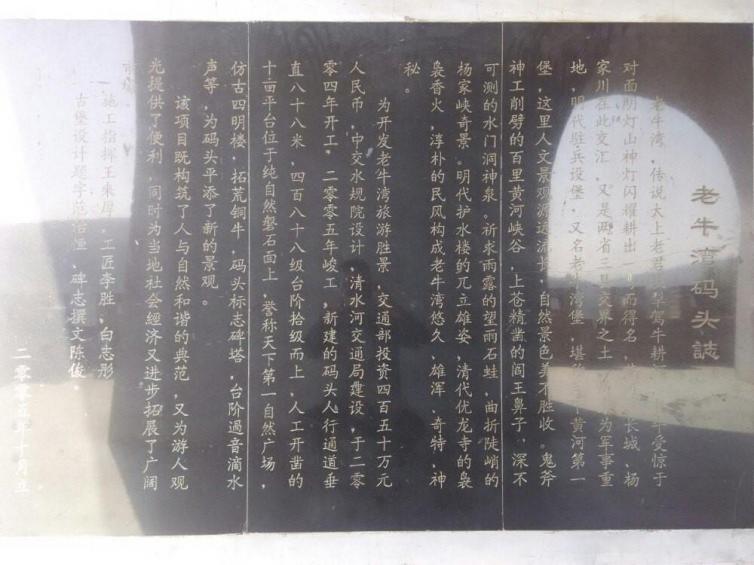 老牛湾码头誌
老牛湾，传说太上老君 草驾牛耕 牛受惊于
对面阴灯山神灯闪耀耕出 而得名， 长城、杨
家川在此交汇，又是两省三 交界之土 为军事重
地，明代驻兵设堡，又名老牛湾堡，堪 黄河第一
堡，这里人文景观源远流长，自然景色美不胜收。鬼斧
神工削劈的百里黄河峡谷，上苍精凿的阎王鼻子，深不
可测的水门洞神泉。祈求雨露的望雨石蛙，曲折陡峭的
杨家峡奇景。明代护水楼的兀立雄姿，清代优龙寺的袅
袅香火，淳朴的民风构成老牛湾悠久、雄浑、奇特、神
秘。
为开发老牛湾旅游胜景，交通部投资四百五十万元
人民币，中交水规院设计，清水河交通局建设，于二零
零四年开工，二零零五年峻工，新建的码头人行通道垂
直八十八米，四百八十八级台阶拾级而上，人工开凿的
十亩平台位于纯自然磐石面上，誉称天下第一自然广场，
仿古四明楼，拓荒铜牛，码头标志碑塔，台阶遏音滴水
声等，为码头平添了新的景观。
该项目既构筑了人与自然和谐的典范，又为游人观
光提供了便利，同时为当地社会经济又进步拓展了广阔
施工指挥王来厚，工匠李胜，白志彤
古堡设计题字范治恒、碑志撰文陈俊。
二零零五年十月立